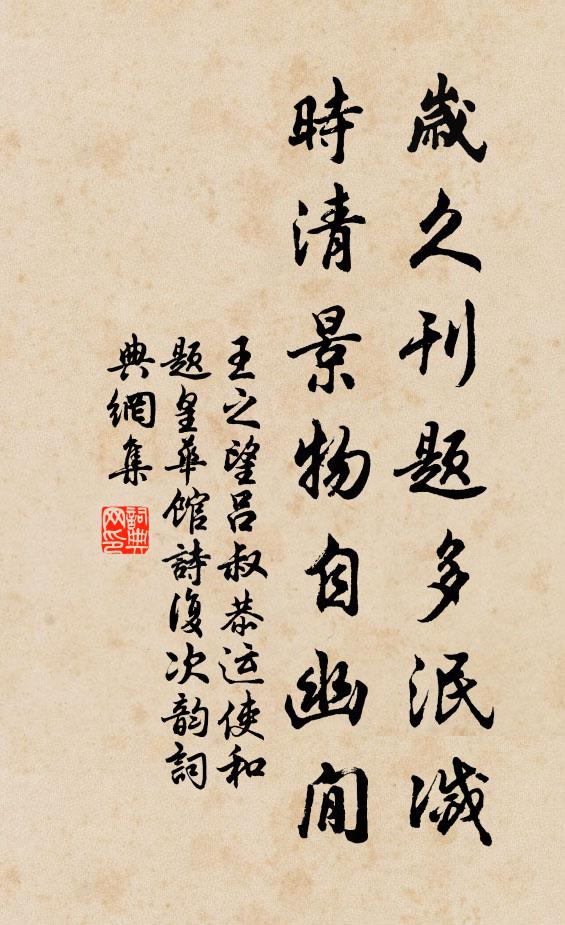 歲久刊題多泯滅
時清景物自幽閒
王之望呂叔恭运使和
题皇華館詩復次韵詞
典網集
詞典网印